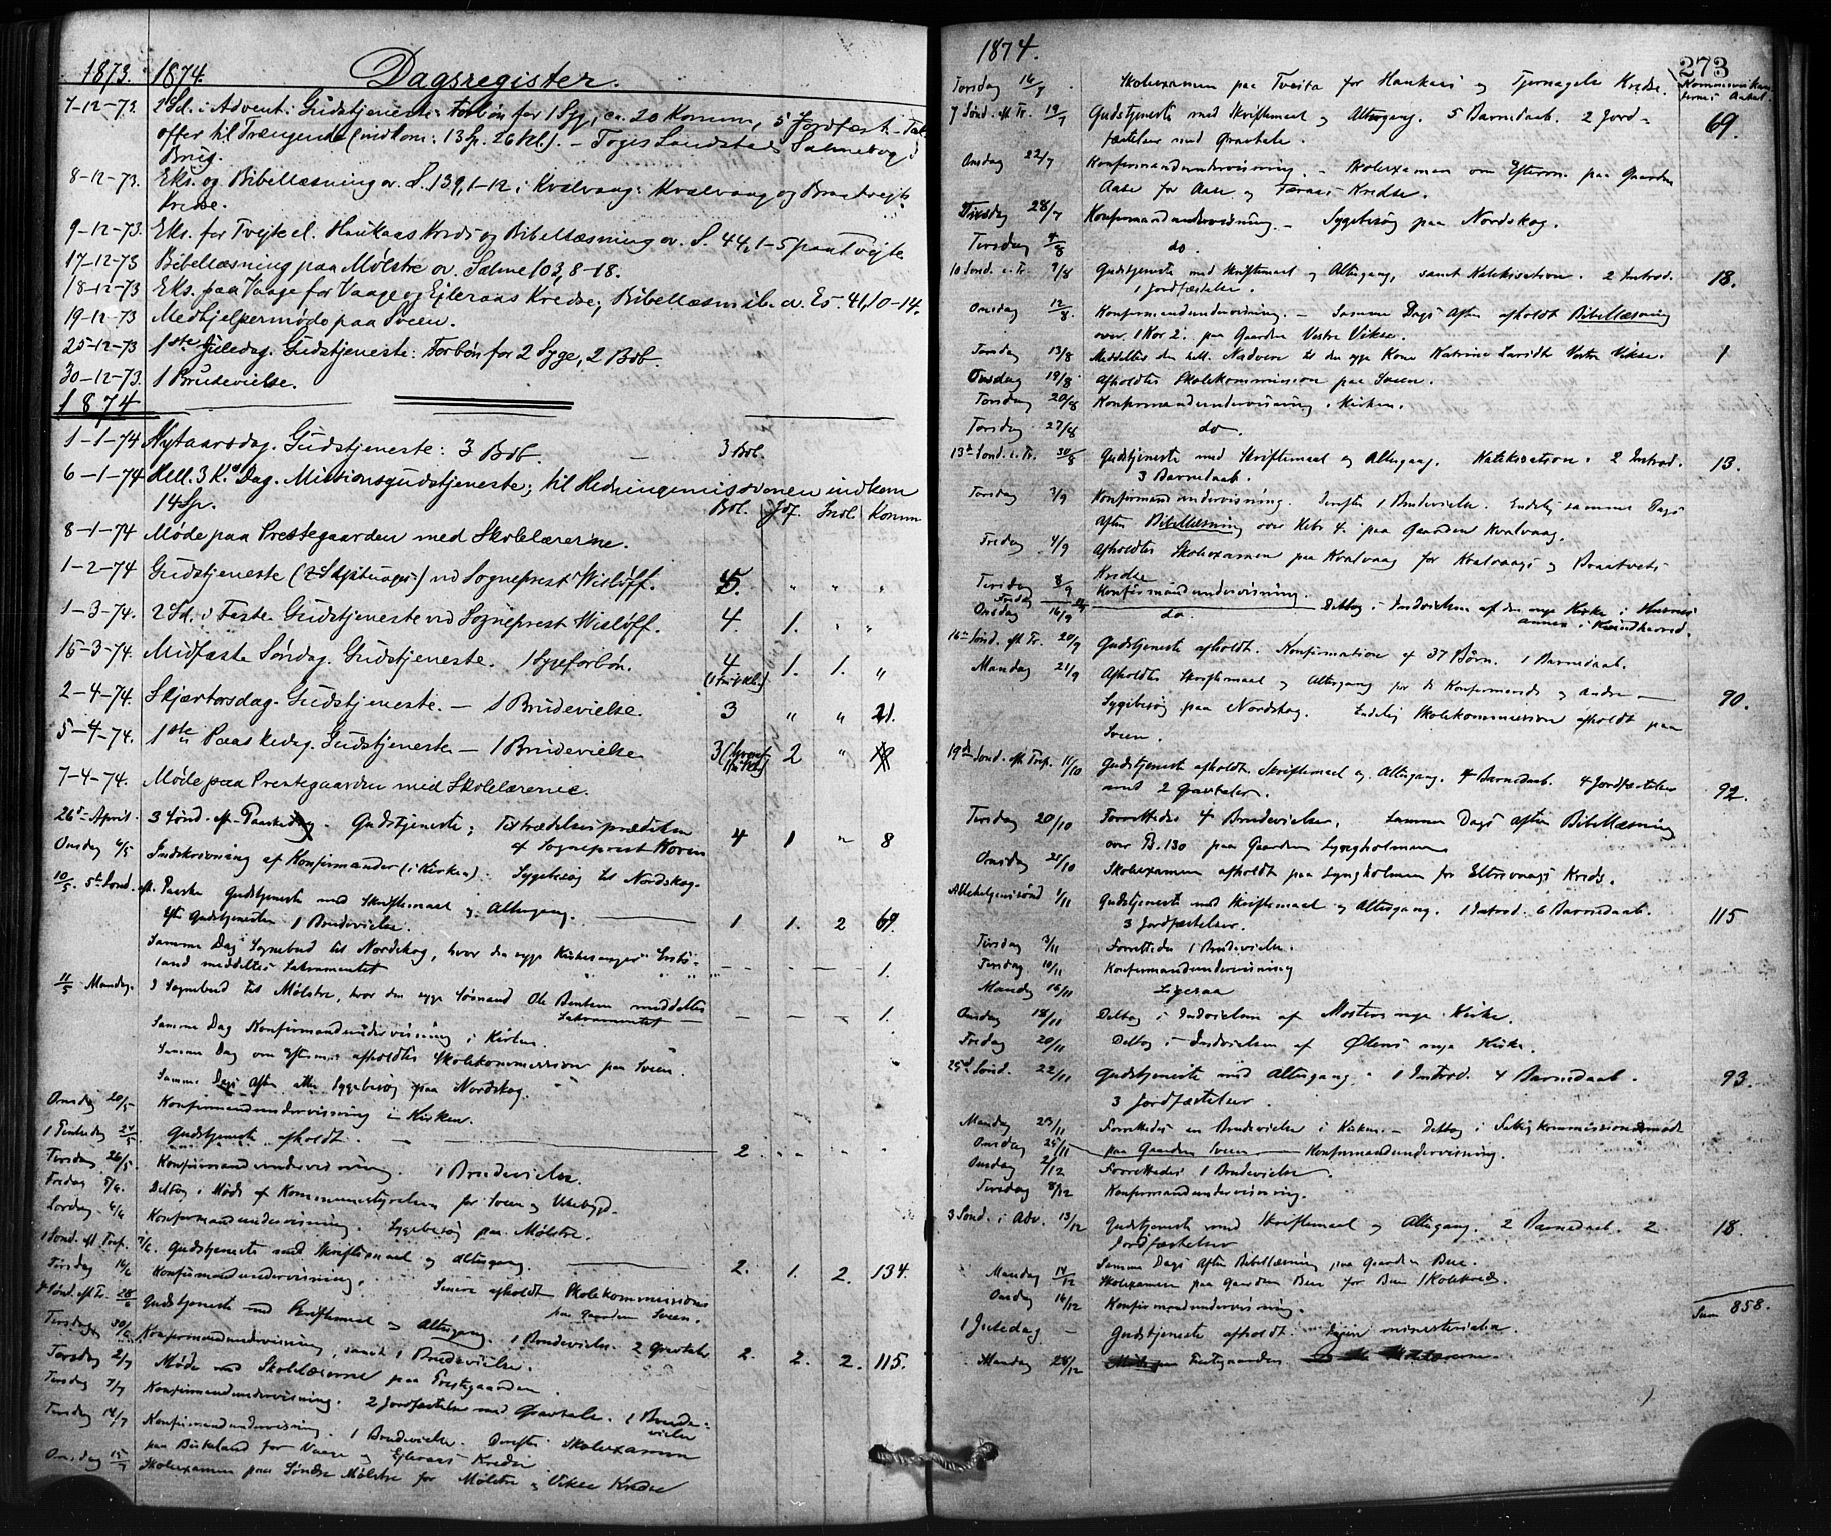 1873. 1874. Dagsregister.
7-12-73. 2 Sd. i Advent: Gudstjeneste: Forbøn for 1 Syg, ca. 20 Komm, 5 Jordfæst.
offer til Trængende (indkom: 13 Sp. 26 skl.). – Toges Landstads Salmebog i
Brug.
8-12-73. Eks. og Bibellæsning ov. S. 139, 1-12 i Kvalvaag: Kvalvaag og Braatvejts
Kredse.
9-12-73. Eks. for Tvejte el. Haukaas Kreds og Bibellæsning ov. S. 44, 1-5 paa Tvejte
17-12-73 Bibellæsning paa Mølstre ov. Salme 103, 8-18.
18-12-73 Eks. paa Vaage for Vaage og Ejleraas Kredse; Bibellæsn ib. o. Es. 41, 10-14.
19-12-73 Medhjelpermøde paa Sveen.
25-12-73 1ste Juledag. Gudstjeneste: Forbøn for 2 Syge, 2 Bdb.
30-12-73. 1 Brudevielse.
1874
1-1-74 Nytaarsdag. Gudstjeneste: 3 Bdb. – 3 Bdb.
6-1-74 Hell. 3 K. Dag. Missionsgudstjeneste; til Hedningemissionen indkom
14 Sp. Bdb. Jdf. Indl. Komm
8-1-74 Møde paa Prestegaarden med Skolelærerne.
1-2-74 Gudstjeneste ved Sogneprest Wisløff. 5. " " "
1-3-74. 2 Sd. i Faste. Gudstjeneste ved Sogneprest Wisløff. 4. 1. " "
15-3-74. Midfaste Søndag. Gudstjeneste. 1 Sygeforbøn. 4 1. 1. "
2-4-74. Skjærtorsdag. Gudstjeneste. – 1 Brudevielse. 3 " " 21.
5-4-74. 1ste Paaskedag. Gudstjeneste – 1 Brudevielse 3 2 "
7-4-74. Møde paa Prestegaarden med Skolelærerne.
26de April. 3 Sønd. eft. Paaskedag. Gudstjeneste; Tiltrædelsesprædiken
af Sogneprest Koren 4 1 " 8
Onsdag 6/5 Indskrivning af Konfirmander (i Kirken). Sygebesøg til Nordskog.
10/5. 5te Sønd. eft. Paaske Gudstjeneste med Skriftemaal og Altergang.
Efter Gudstjenesten 1 Brudevielse. 1 1. 2 69.
Samme Dag Sognebud til Nordskog, hvor den syge
meddeltes Sakramentet – – – 1.
11/5 Mandag. Sognebud til Mølstre, hvor den syge Ole meddeltes
Sakramentet – – – 1.
Samme Dag Konfirmandundervisning i Kirken.
Samme Dag om Efterm. afholdtes Skolekommission paa Sveen.
Samme Dags Aften atter Sygebesøg paa Nordskog.
Onsdag 20/5 Konfirmandundervisning i Kirken.
1 Pintsedag 24/5. Gudstjeneste afholdt. 2. " " "
Tirsdag 26/5 Konfirmandundervisning. 1 Brudevielse.
Fredag 5/6. Deltog i Møde af Kommunestyrelsen for Sveen og
Lørdag 6/6 Konfirmandundervisning. Sygebesøg paa Mølstre.
1 Sønd. eft. Tref. 7/6. Gudstjeneste med Skriftemaal og Altergang. 2. 1. 2. 134.
Tirsdag 16/6 Konfirmandundervisning. Senere afholdt Skolekommission
paa Gaarden Sveen.
4 Sønd. eft. Tr. 28/6 Gudstjeneste med Skriftemaal og Altergang. 1 Brudevielse. 2 Gravtaler 2. 2. 2. 115.
Tirsdag 30/6 Konfirmandundervisning, samt 1 Brudevielse.
Torsdag 2/7 Møde med Skolelærerne paa Prestegaarden.
Tirsdag 7/7 Konfirmandundervisning. 2 Jordfæstelser med Gravtale. 1 Brude-
vielse
Tirsdag 14/7 Konfirmandundervisning. 1 Brudevielse. Derefter Skolexamen
paa Birkeland for Vaage og Ejleraas Kredse.
Onsdag 15/7 Skolexamen paa Søndre Mølstre for Mølstre og Vikse Kredse
1874. 273
Kommunikan-
ternes Antal.
Torsdag 16/7 Skolexamen paa Tveita for Haukaas og Tjernagels Kredse.
7 Sønd. eft. Tr. 19/7 Gudstjeneste med Skriftemaal og Altergang. 5 Barnedaab. 2 Jord-
fæstelser med Gravtale. 69.
Onsdag 22/7 Konfirmandundervisning. – Skolexamen om Efterm. paa Gaarden
Aase for Aase og Førnæs Kredse.
Tirsdag 28/7 Konfirmandundervisning. – Sygebesøg paa Nordskog.
Tirsdag 4/8 do.
10 Sønd. e. Tr. 9/8 Gudstjeneste med Skriftemaal og Altergang, samt Katekisation. 2 Introd.
1 Jordfæstelse. 18.
Onsdag 12/8. Konfirmandundervisning. – Samme Dags Aften afholdt Bibellæsning
over 1 Kor 2. paa Gaarden Vestre Vikse.
Torsdag 13/8 Meddeltes den hell. Nadver til den syge Kone Katrine Vestre Vikse. 1
Onsdag 19/8 Afholdtes Skolekommission paa Sveen.
Torsdag 20/8 Konfirmandundervisning i Kirken.
Torsdag 27/8 do.
13de Sønd. e. Tr. 30/8 Gudstjeneste med Skriftemaal og Altergang. Katekisation. 2 Introd.
3 Barnedaab. 13.
Torsdag 3/9 Konfirmandundervisning. Derefter 1 Brudevielse. Endelig samme Dags
Aften Bibellæsning over Hebr 4. paa Gaarden Kvalvaag.
Fredag 4/9 Afholdtes Skolexamen paa Kvalvaag for Kvalvaags og Braatveits
Kredse
Tirsdag 8/9 Konfirmandundervisning.
Fredag Deltog i Indvielsen af den nye Kirke i Husnæs
annex i Kvindherred.
Onsdag 16/9 do.
16de Sønd. eft. Tr. 20/9 Gudstjeneste afholdt. Konfirmation af 37 Børn. 1 Barnedaab.
Mandag 21/9 Afholdtes Skriftemaal og Altergang for Konfirmerede og Andre –
Sygebesøg paa Nordskog. Endelig Skolekommission afholdt paa
Sveen. 90.
19de Sønd. eft. Tref. 11/10 Gudstjeneste afholdt. Skriftemaal og Altergang. 4 Barnedaab. 4 Jordfæstelser
med 2 Gravtaler. 92.
Tirsdag 20/10 Forrettedes 4 Brudevielser. Samme Dags Aften Bibellæsning
over Ps. 130 paa Gaarden Lyngholmen
Onsdag 21/10 Skolexamen afholdt paa Lyngholmen for Eltrevaags Kreds.
Allehelgenssønd 1/11 Gudstjeneste med Skriftemaal og Altergang. 1 Introd. 6 Barnedaab.
3 Jordfæstelser. 115
Tirsdag 3/11 Forrettedes 1 Brudevielse.
Tirsdag 10/11 Konfirmandundervisning
Mandag 16/11 Ligesaa
Onsdag 18/11 Deltog i Indvielsen af Mosters nye Kirke.
Fredag 20/11 Deltog i Indvielsen af Ølens nye Kirke.
25de Sønd. 22/11 Gudstjeneste med Altergang. 1 Introd. 4 Barnedaab.
3 Jordfæstelser. 93.
Mandag 23/11 Forrettedes en Brudevielse i Kirken. – Deltog i
paa Gaarden Sveen
Onsdag 25/11 Konfirmandundervisning.
Onsdag 2/12 Forrettedes 1 Brudevielse.
Tirsdag 8/12 Konfirmandundervisning.
3 Sønd. i Adv. 13/12 Gudstjeneste med Skriftemaal og Altergang. 2 Barnedaab. 2
Jordfæstelser 18.
Samme Dags Aften Bibellæsning paa Gaarden Bue.
Mandag 14/12 Skolexamen paa Gaarden Bue for Bue Skolekreds.
Onsdag 16/12 Konfirmandundervisning.
Sum 858.
1 Juledag – Gudstjeneste afholdt. Ingen ministerialia.
Mandag 28/12 Møde paa Prestegaarden